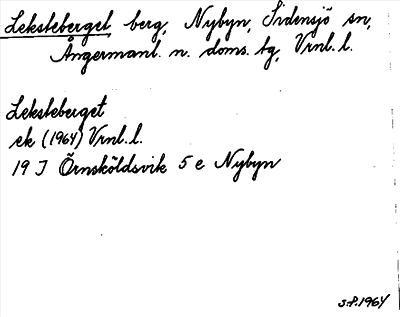 Leksteberget, berg, Nybyn, Sidensjö sn,
Ångermanl. n. doms. tg, Vrnl. l.
Leksteberget
ek (1964) Vrnl. l.
19 J Örnsköldsvik 5 e Nybyn
S.P. 1964